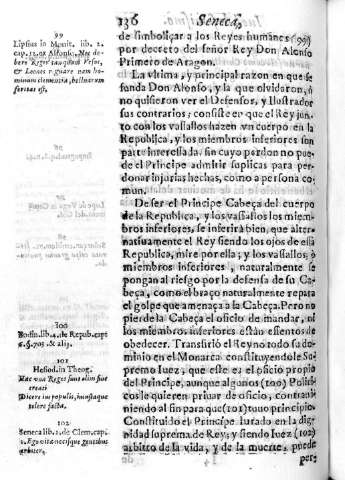 136 Seneca,
de simbolizar a los Reyes humanos (99)
por decreto del señor Rey Don Alonso
Primero de Aragon.
La vltima, y principal razon en que se
funda Don Alonso, y la que olvidaron, ò
no quisieron ver el Defensor, y Ilustrador
sus contrarios, consiste en que el Rey jun-
to con los vassallos hazen vn cuerpo en la
Republica, y los miembros inferiores son
parte interessada, sin cuyo perdon no pue-
de el Principe admitir suplicas para per-
donar injurias hechas, como a persona co-
mun.
De ser el Principe Cabeça del cuerpo
de la Republica, y los vassallos los miem-
bros inferiores, se inferirà bien, que alter-
nativamente el Rey siendo los ojos de essa
Republica, mire por ella; y los vassallos, ò
miembros inferiores, naturalmente se
pongan al riesgo por la defensa de su Ca-
beça, como el braço naturalmente repara
el golpe que amenaça a la Cabeça. Pero no
pierde la Cabeça el oficio de mandar, ni
los miembros inferiores estàn essentos de
obedecer. Transfiriò el Reyno todo su do-
minio en el Monarca constituyendole Su-
premo Iuez, que este es el oficio propio
del Principe, aunque algunos (100) Politi-
cos le quieren privar de oficio, contravi-
niendo al fin para que (101) tuuo principio.
Constituido el Principe Iurado en la dig-
nidad suprema de Rey, y siendo Iuez (102)
arbitro de la vida, y de la muerte, puede
per-
99
Lipsius in Monit. lib. 2.
cap. 12. ex Alfonso. Nec de-
bere Reges
et Leones regnare nam ho-
minum clementia, belluarum
feritas est.
100
Bodin. lib. 2. de Repub. cap.
5. §. 703. & alij.
101
Hesiod. in Theog.
Hac una Reges sunt olim fine
creati
Dicere ius populis, iniustaque
tolere facta.
102
Seneca lib. 1. de Clem. cap.
1. Ego vitae necisque gentibus
arbiter.